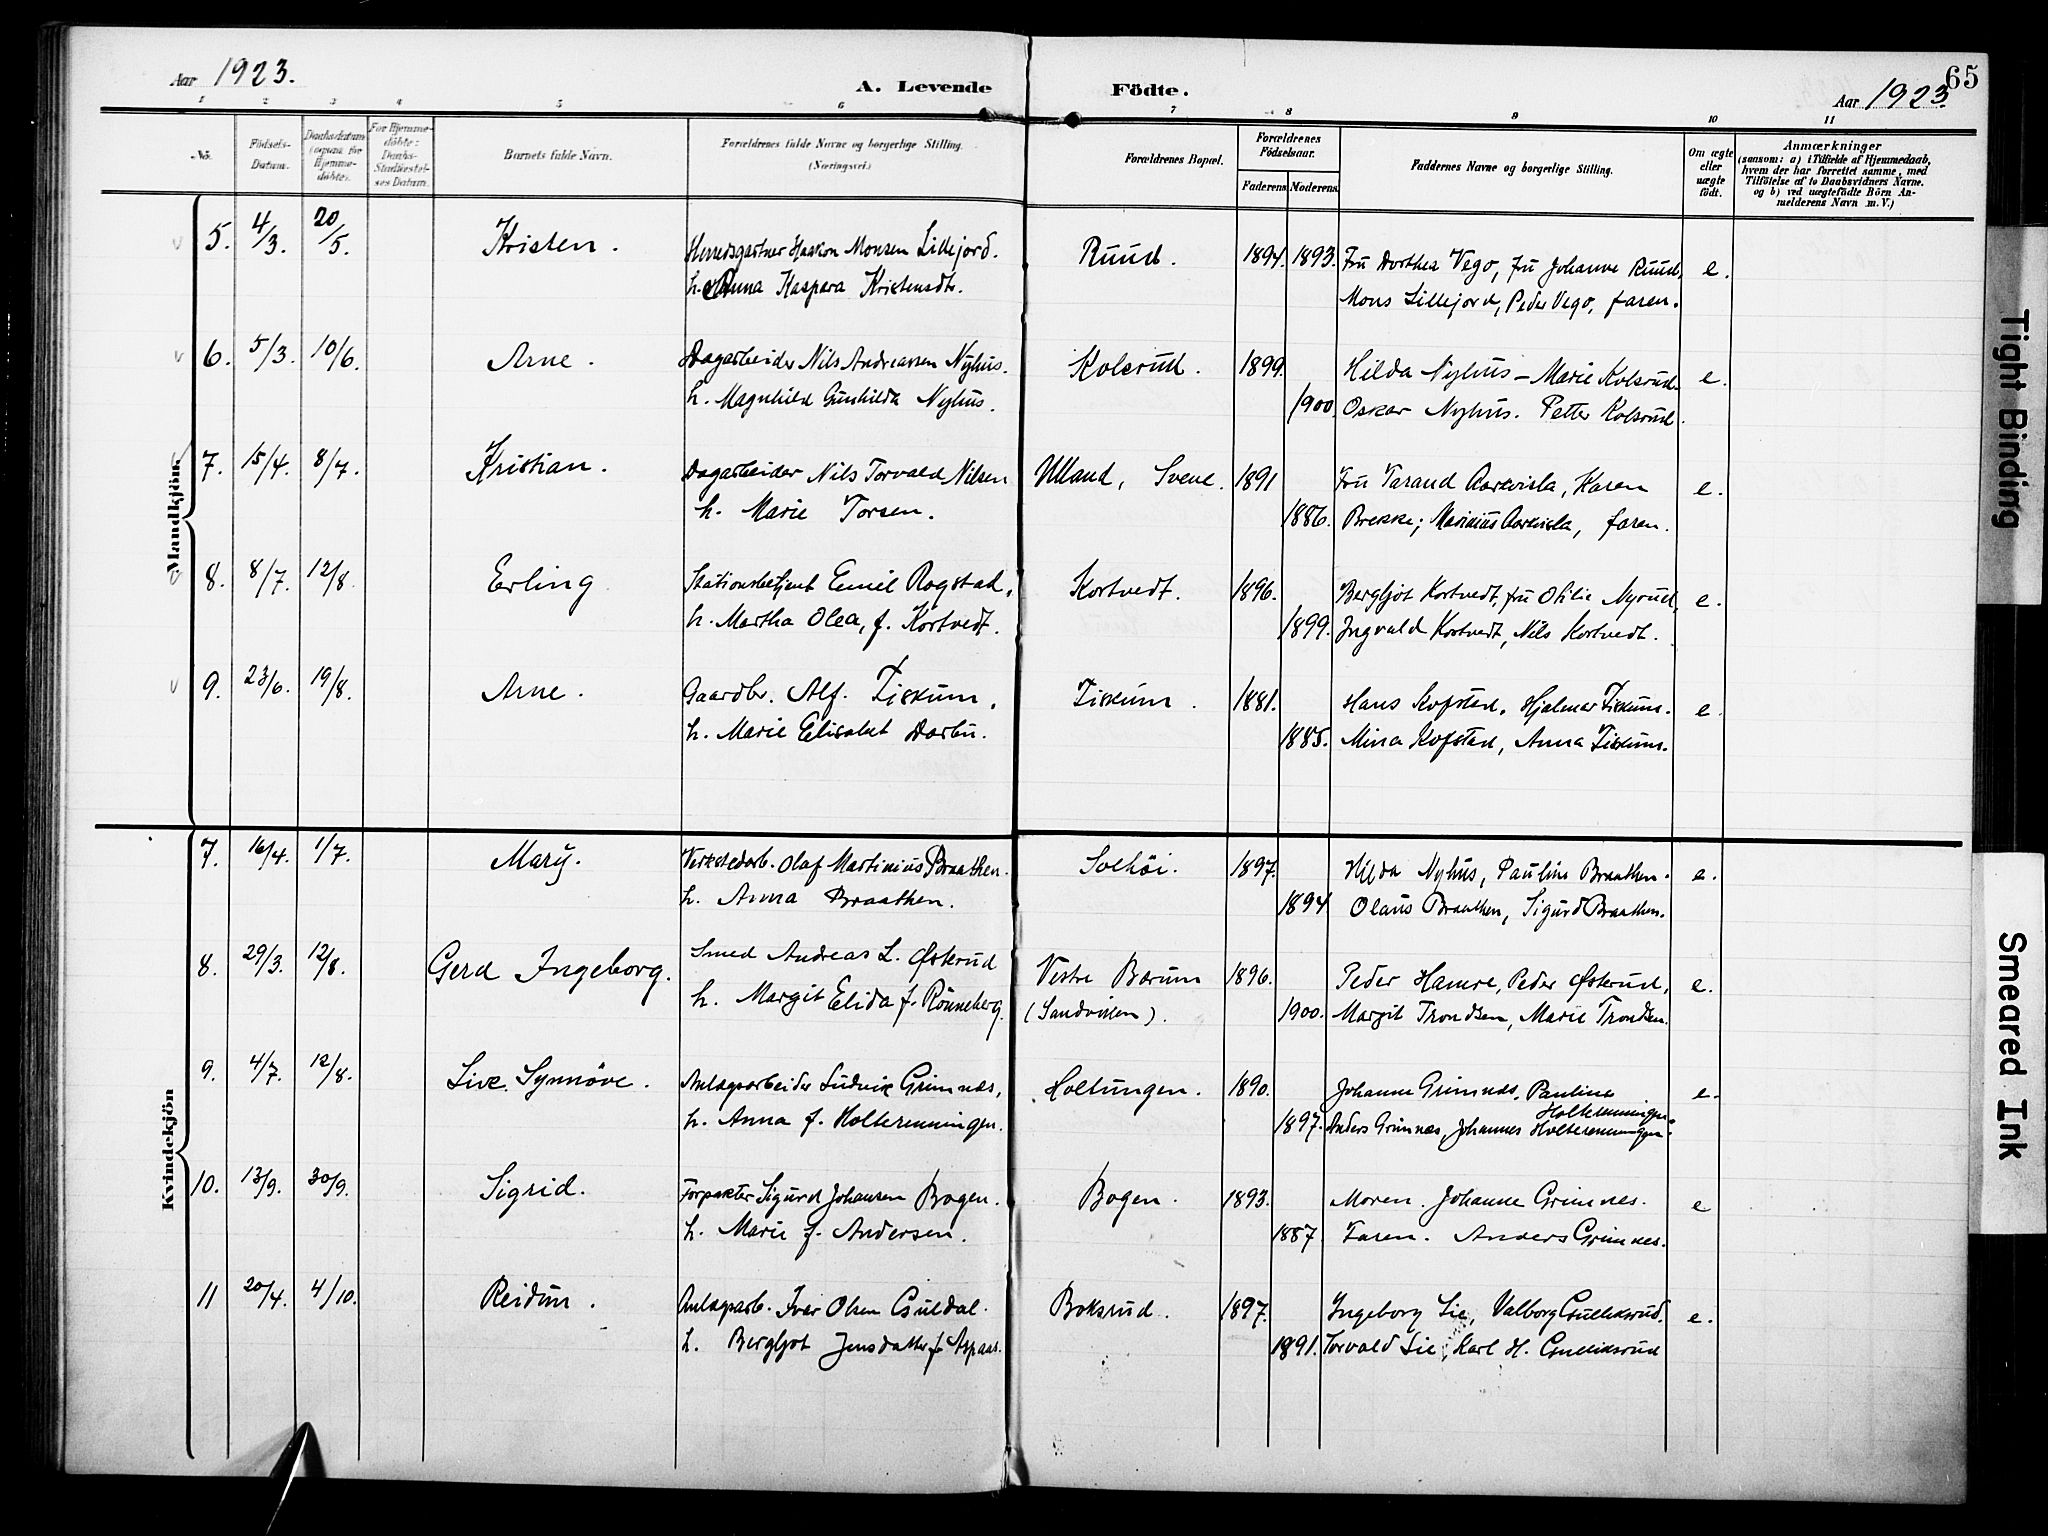 Aar 1923.
A. Levende
Födte.
65
Aar 1923.
1 2 3 4 5 6 7 8 9 10 11
No.
Födsels-Datum.
Daabsdatum (ogsaa for Hjemme-döbte).
For Hjemme-döbte: Daabs-Stadfæstel-ses Datum.
Barnets fulde Navn.
Forældrenes fulde Navne og borgerlige Stilling. (Næringsvei.)
Forældrenes Bopæl.
Forældrenes Födselsaar.
Faderens. Moderens.
Faddernes Navne og borgerlige Stilling.
Om ægte eller uægte födt.
Anmærkninger
(saasom: a) i Tilfælde af Hjemmedaab,
hvem der har forrettet samme, med
Tilföielse af to Daabsvidners Navne.
og b) ved uægtefödte Börn An-
melderens Navn m. V.)
Mandkjön.
5. 4/3. 20/5. Kristen. Herredsgartner Haakon Monsen Lillejord. Ruud. 1894. 1893. Fru Dorthea Vego, fru Johanne Ruud, e.
h. Anna Kaspara Kristensdtr. Mons Lillejord, Peder Vego, faren.
6. 5/3. 10/6. Arne. Dagarbeider Nils Andreassen Nyhus. Kolsrud. 1899. Hilda Nyhus - Marie Kolsrud. e.
h. Magnhild Gunhilda Nyhus. 1900. Oskar Nyhus. Petter Kolsrud.
7. 15/4. 8/7. Kristian. Dagarbeider Nils Torvald Nilsen Ulland, Svene. 1891 Fru Tarand Aarkvisla, Karen e.
h. Marie Torsen. 1886. Brekke; Marinius Aarkvisla, faren.
8. 8/7. 12/8. Erling Stationsbetjent Emil Rogstad, Kortvedt. 1896. Bergljot Kortvedt, fru Othilie Nyrud, e.
h. Martha Olea, f. Kortvedt. 1899. Ingvald Kortvedt, Nils Kortvedt.
9. 23/6. 19/8. Arne. Gaardbr. Alf. Fiskum, Fiskum. 1881. Hans Kofstad, Hjalmar Fiskum. e.
h. Marie Elisabet Darbu. 1885. Mina Kofstad, Anna Fiskum.
Kvindekjön
7. 16/4. 1/7. Mary. Verkstedarb. Olaf Martinius Braathen. Solhöi. 1897. Hilda Nyhus, Pauline Braathen. e.
h. Anna Braathen. 1894 Olaus Braathen, Sigurd Braathen.
8. 29/3. 12/8. Gerd Ingeborg. Smed Andreas L. Østerud Vestre Bærum 1896. Peder Hamre, Peder Østerud, e.
h. Margit Elida f. Rönneberg. (Sandviken). 1900. Margit Trondsen, Marie Trondsen.
9. 4/7. 12/8. Live Synnöve. Anlægsarbeider Ludvik Grimnæs, Holtungen. 1890. Johanne Grimnæs, Pauline e.
Holterenningen
h. Anna f. Holterenningen. 1897. Anders Grimnæs, Johannes Holterenningen.
10. 13/9. 30/9. Sigrid. Forpakter Sigurd Johansen Bogen. Bogen. 1893. Moren. Johanne Grimnes. e
h. Marie f. Andersen. 1887. Faren. Anders Grimnes.
11 20/4. 4/10. Reidun. Anlægsarb. Ivar Olsen Boksrud. 1897. Ingeborg Lie, Valborg Gulliksrud. e.
h. Bergljot Jensdatter f. Aspaas. 1891. Torvald Lie, Karl H. Gulliksrud
Tight Binding
Smeared Ink